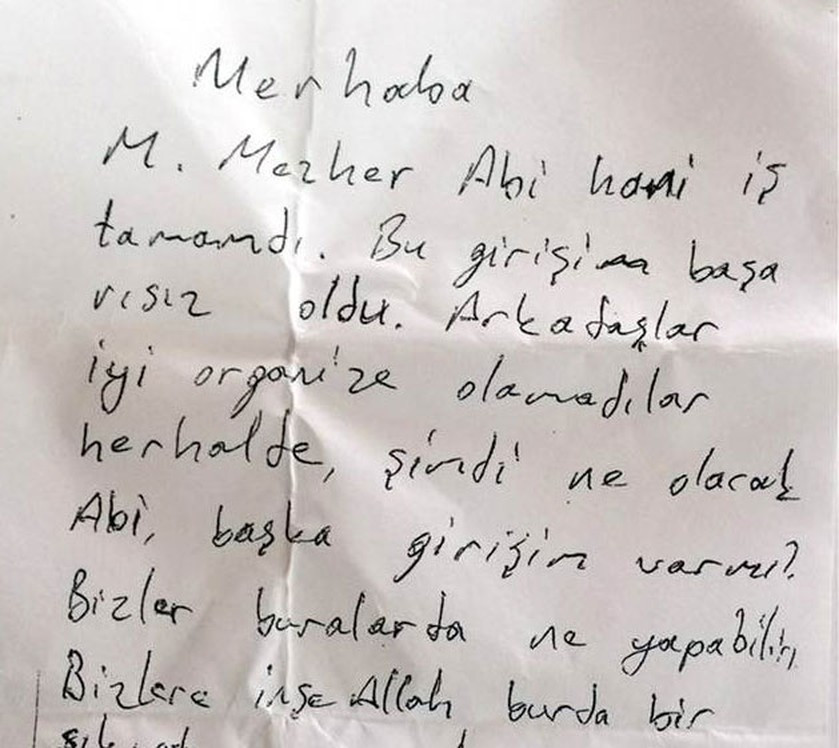 Merhaba
M. Mezher Abi hani iş
tamamdı. Bu girişim başa
rısız oldu. Arkadaşlar
iyi organize olamadılar
herhalde, şimdi ne olacak
Abi, başka girişim varmı?
Bizler buralarda ne yapabiliriz
Bizlere inşe Allah burda bir